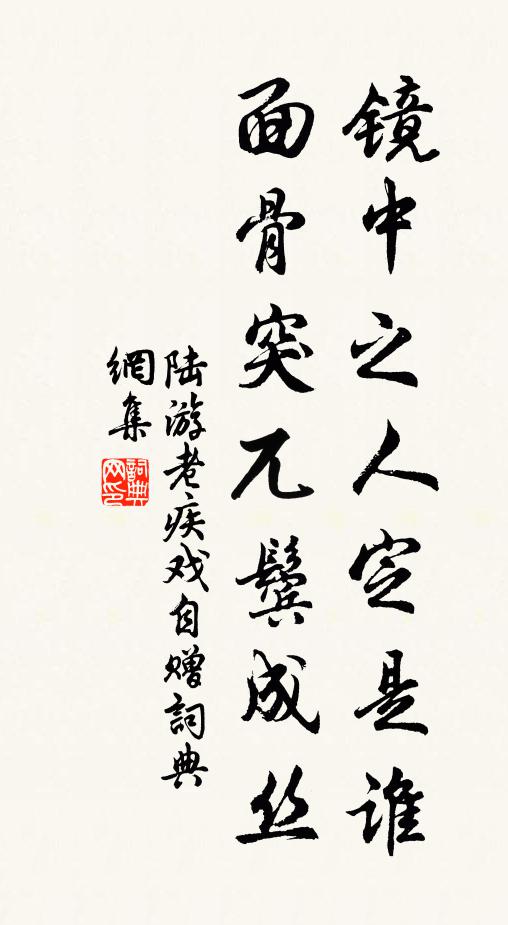 镜中之人定是谁
面骨突兀鬓成丝
陆游老疾戏自赠詞典
網集
詞典网印